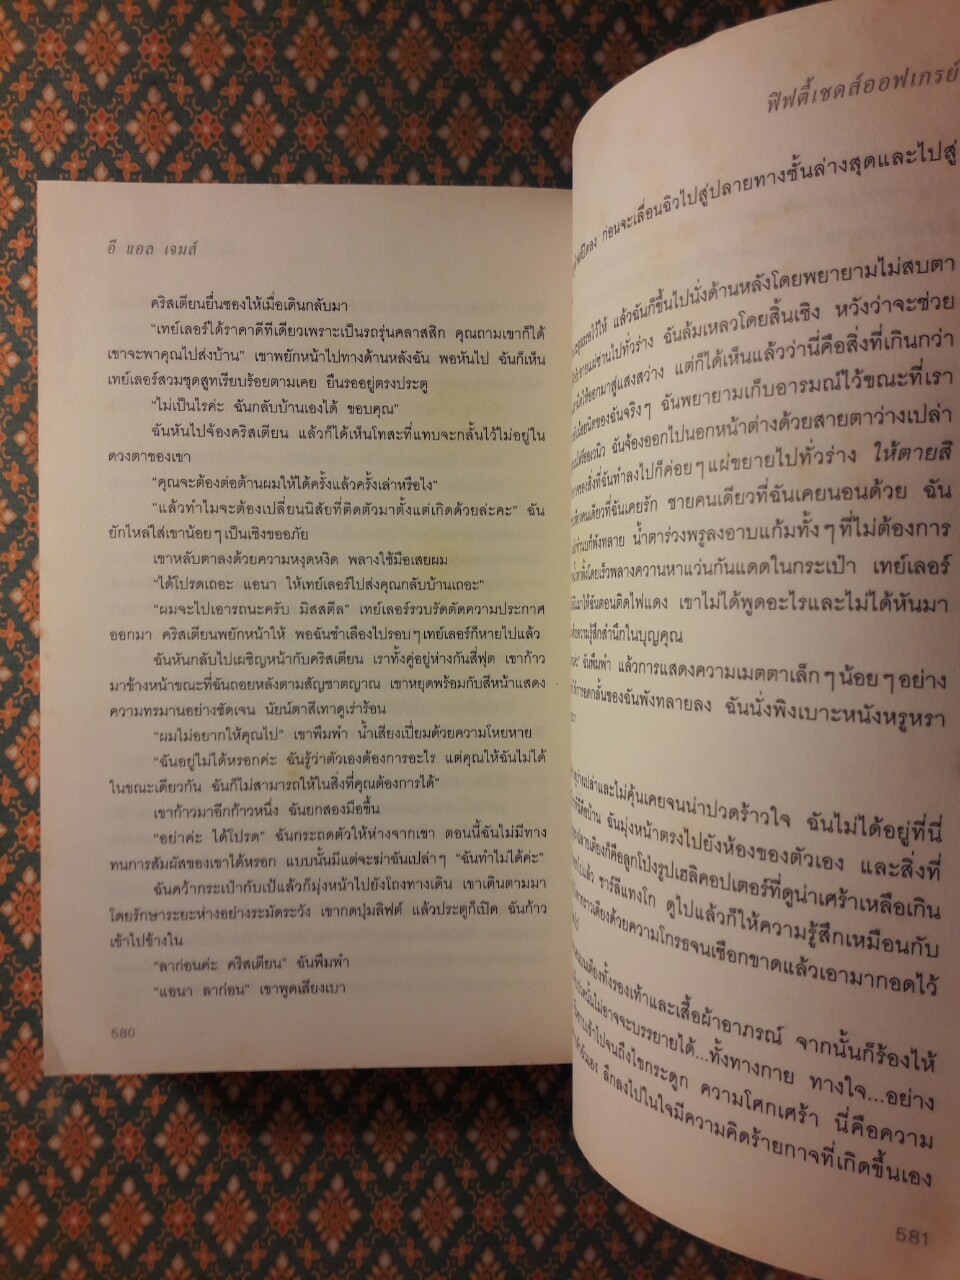 อี แอล เจมส์
คริสเตียนยื่นซองให้เมื่อเดินกลับมา
"เทย์เลอร์ได้ราคาดีทีเดียวเพราะเป็นรถรุ่นคลาสสิก คุณถามเขาก็ได้
เขาจะพาคุณไปส่งบ้าน" เขาพยักหน้าไปทางด้านหลังฉัน พอหันไป ฉันก็เห็น
เทย์เลอร์สวมชุดสูทเรียบร้อยตามเคย ยืนรออยู่ตรงประตู
"ไม่เป็นไรค่ะ ฉันกลับบ้านเองได้ ขอบคุณ"
ฉันหันไปจ้องคริสเตียน แล้วก็ได้เห็นโทสะที่แทบจะกลั้นไว้ไม่อยู่ใน
ดวงตาของเขา
"คุณจะต้องต่อต้านผมให้ได้ครั้งแล้วครั้งเล่าหรือไง"
"แล้วทำไมจะต้องเปลี่ยนนิสัยที่ติดตัวมาตั้งแต่เกิดด้วยล่ะคะ" ฉัน
ยักไหล่ใส่เขาน้อยๆเป็นเชิงขออภัย
เขาหลับตาลงด้วยความหงุดหงิด พลางใช้มือเสยผม
"ได้โปรดเถอะ แอนา ให้เทย์เลอร์ไปส่งคุณกลับบ้านเถอะ"
"ผมจะไปเอารถนะครับ มิสสตีล" เทย์เลอร์รวบรัดตัดความประกาศ
ออกมา คริสเตียนพยักหน้าให้ พอฉันชำเลืองไปรอบๆเทย์เลอร์ก็หายไปแล้ว
ฉันหันกลับไปเผชิญหน้ากับคริสเตียน เราทั้งคู่อยู่ห่างกันสี่ฟุต เขาก้าว
มาข้างหน้าขณะที่ฉันถอยหลังตามสัญชาตญาณ เขาหยุดพร้อมกับสีหน้าแสดง
ความทรมานอย่างชัดเจน นัยน์ตาสีเทาดูเร่าร้อน
"ผมไม่อยากให้คุณไป" เขาพึมพำ น้ำเสียงเปี่ยมด้วยความโหยหาย
"ฉันอยู่ไม่ได้หรอกค่ะ ฉันรู้ว่าตัวเองต้องการอะไร แต่คุณให้ฉันไม่ได้
ในขณะเดียวกัน ฉันก็ไม่สามารถให้ในสิ่งที่คุณต้องการได้"
เขาก้าวมาอีกก้าวหนึ่ง ฉันยกสองมือขึ้น
"อย่าค่ะ ได้โปรด" ฉันกระถดตัวให้ห่างจากเขา ตอนนี้ฉันไม่มีทาง
ทนการสัมผัสของเขาได้หรอก แบบนั้นมีแต่จะฆ่าฉันเปล่าๆ "ฉันทำไม่ได้ค่ะ"
ฉันคว้ากระเป๋ากับเป้แล้วก็มุ่งหน้าไปยังโถงทางเดิน เขาเดินตามมา
โดยรักษาระยะห่างอย่างระมัดระวัง เขากดปุ่มลิฟต์ แล้วประตูก็เปิด ฉันก้าว
เข้าไปข้างใน
"ลาก่อนค่ะ คริสเตียน" ฉันพึมพำ
"แอนา ลาก่อน" เขาพูดเสียงเบา
580
ฟิฟตี้เชดส์ออฟเกรย์
ก่อนจะเลื่อนฉิวไปสู่ปลายทางชั้นล่างสุดและไปสู่
แล้วฉันก็ขึ้นไปนั่งด้านหลังโดยพยายามไม่สบตา
ฉันล้มเหลวโดยสิ้นเชิง หวังว่าจะช่วย
แต่ก็ได้เห็นแล้วว่านี่คือสิ่งที่เกินกว่า
ฉันพยายามเก็บอารมณ์ไว้ขณะที่เรา
ฉันจ้องออกไปนอกหน้าต่างด้วยสายตาว่างเปล่า
ของสิ่งที่ฉันทำลงไปก็ค่อยๆแผ่ขยายไปทั่วร่าง ให้ตายสิ
คนเดียวที่ฉันเคยรัก ชายคนเดียวที่ฉันเคยนอนด้วย ฉัน
น้ำตาร่วงพรูลงอาบแก้มทั้งๆที่ไม่ต้องการ
โดยเร็วพลางควานหาแว่นกันแดดในกระเป๋า เทย์เลอร์
ให้ฉันตอนติดไฟแดง เขาไม่ได้พูดอะไรและไม่ได้หันมา
ความรู้สึกสำนึกในบุญคุณ
ฉันพึมพำ แล้วการแสดงความเมตตาเล็กๆน้อยๆอย่าง
การอดกลั้นของฉันพังทลายลง ฉันนั่งพิงเบาะหนังหรูหรา
ว่างเปล่าและไม่คุ้นเคยจนน่าปวดร้าวใจ ฉันไม่ได้อยู่ที่นี่
ฉันมุ่งหน้าตรงไปยังห้องของตัวเอง และสิ่งที่
ปลายเตียงก็คือลูกโป่งรูปเฮลิคอปเตอร์ที่ดูน่าเศร้าเหลือเกิน
ชาร์ลีแทงโก ดูไปแล้วก็ให้ความรู้สึกเหมือนกับ
ด้วยความโกรธจนเชือกขาดแล้วเอามากอดไว้
เตียงทั้งรองเท้าและเสื้อผ้าอาภรณ์ จากนั้นก็ร้องไห้
ไม่อาจจะบรรยายได้...ทั้งทางกาย ทางใจ...อย่าง
เข้าไปจนถึงไขกระดูก ความโศกเศร้า นี่คือความ
ลึกลงไปในใจมีความคิดร้ายกาจที่เกิดขึ้นเอง
581